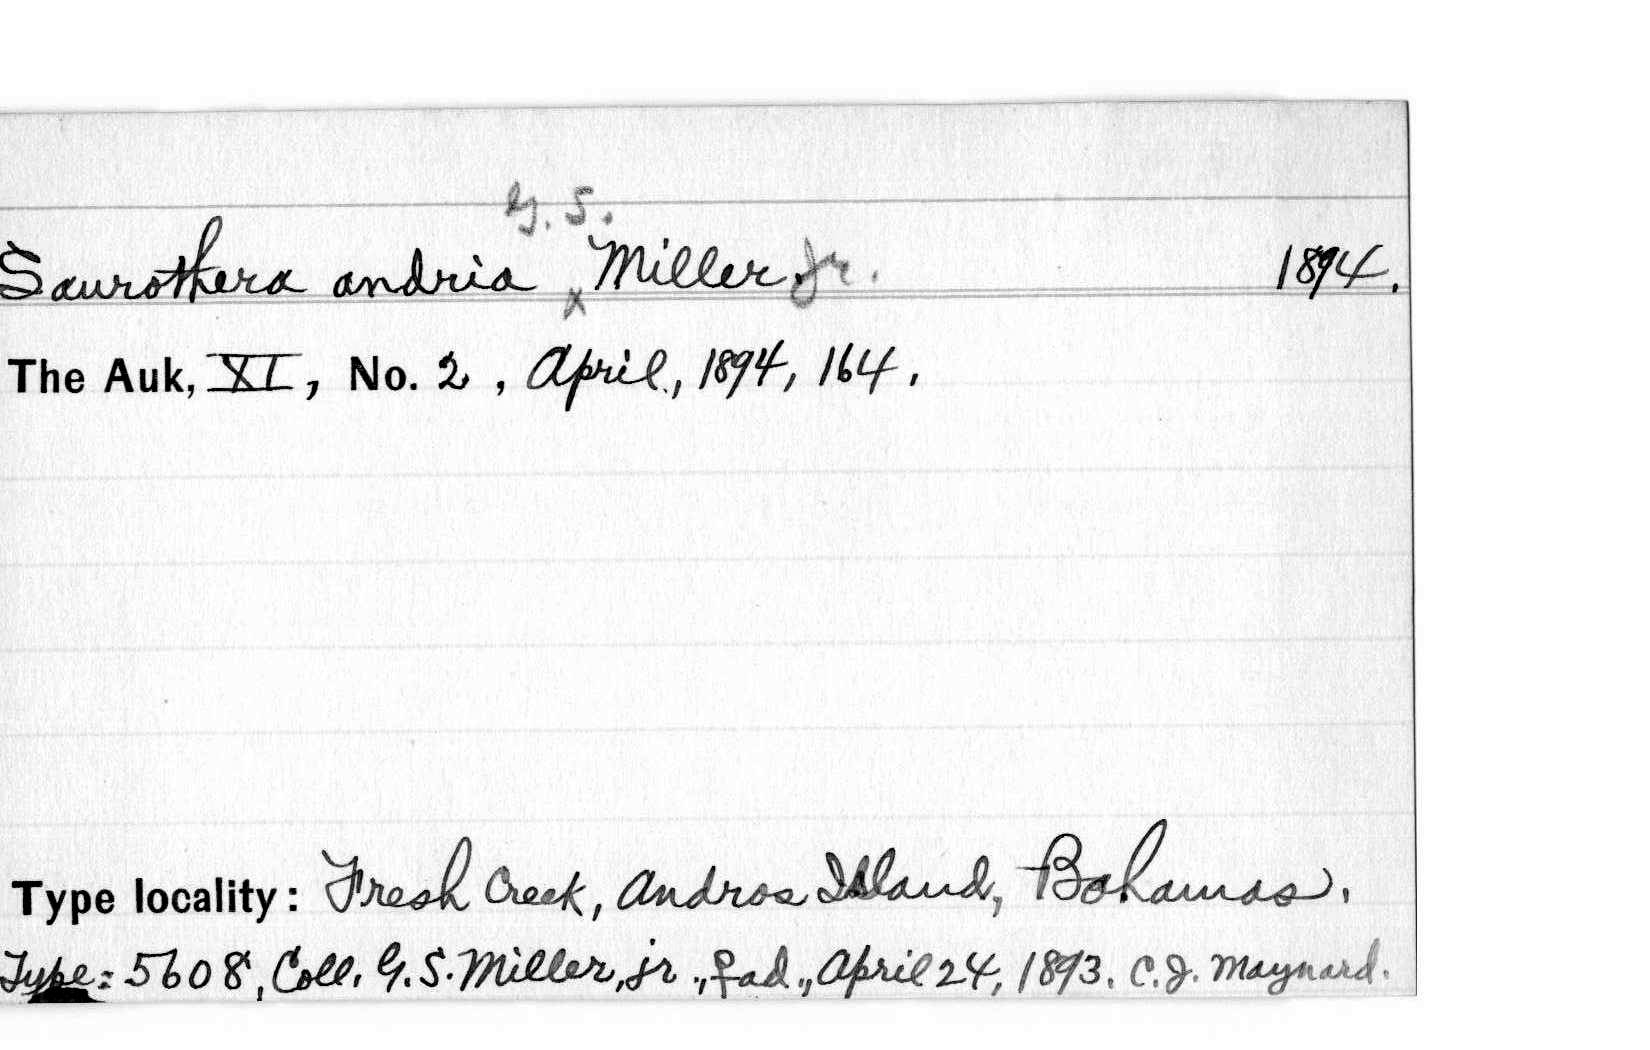 G. S.
Saurothera andria x Miller Jr. 1894.
The Auk, XI, No. 2, April, 1894, 164.
Type locality: Fresh Creek, Andros Island, Bahamas.
Type: 5608, Coll. G. S. Miller, jr., ♀ ad., April 24, 1893. C. J. Maynard.